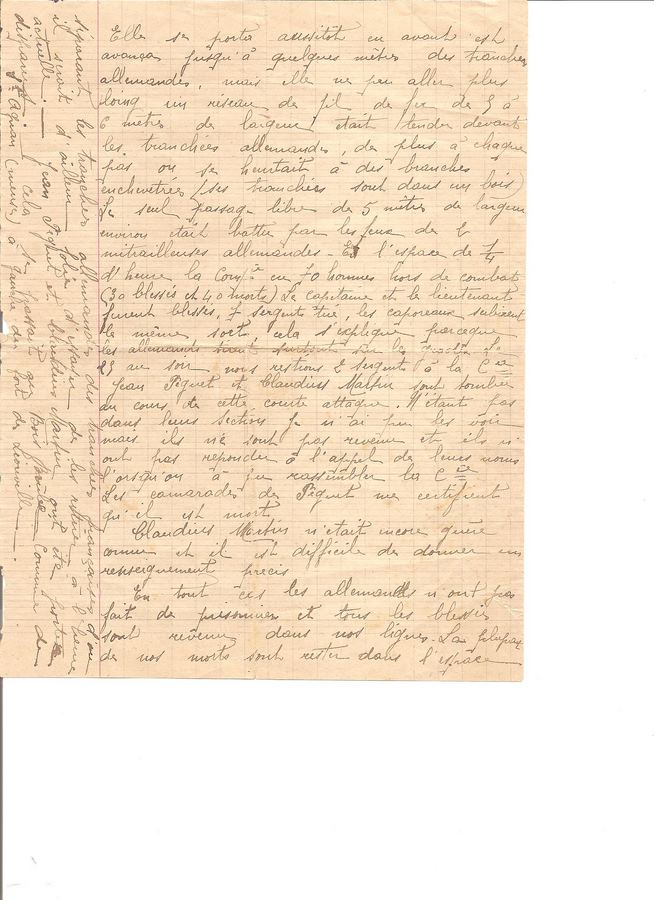 Elle se porta aussitôt en avant est
avança jusqu'à quelques mètres des tranchées
allemandes, mais elle ne peu aller plus
loing un réseau de fil de fer de 5 à
6 mètres de largeur était tendu devant
les tranchées allemandes, de plus à chaque
pas on se heurtait à des branches
enchevêtrées (ses tranchées sont dans un bois)
Le seul passage libre de 5 mètres de largeur
environ était battu par les feux de 6
mitrailleuses allemandes - En l'espace de 1/4
d'heure la Comp.ie eu 70 hommes hors de combat
(30 blessés et 40 morts) Le capitaine et le lieutenant
furent blessés, 7 sergent tué, les caporeaux subirent
le même sort, cela s'explique parceque
les allemands tirent surtout sur les
au soir nous restions 2 sergent à la Cie
Jean Piguet et Claudius Martin sont tombés
au cours de cette courte attaque. N'étant pas
dans leurs sections je n'ai pu les voir
mais ils ne sont pas revenu et ils n'
ont pas repondu à l'appel de leurs noms
l'orsqu'on à pu rassembler la Cie
Les camarades de Piguet me certifient
qu'il est mort
Claudius Martin n'était encore guère
connu et il est difficile de donner un
renseignement précis
En tout cas les allemands n'ont pas
fait de prisonnier et tous les blessés
sont revenu dans nos lignes. La plupart
de nos morts sont rester dans l'espace
séparant les tranchées allemandes des tranchées françaises d'ou
il serait d'ailleurs folie d'essayer de les retirer à l'heure
actuelle. — Jean Piguet et Claudius Martin ont été portés
disparus. cela se passait au Bois Commune de
St Agnan (meuse) à gauche du fort de Liouville.